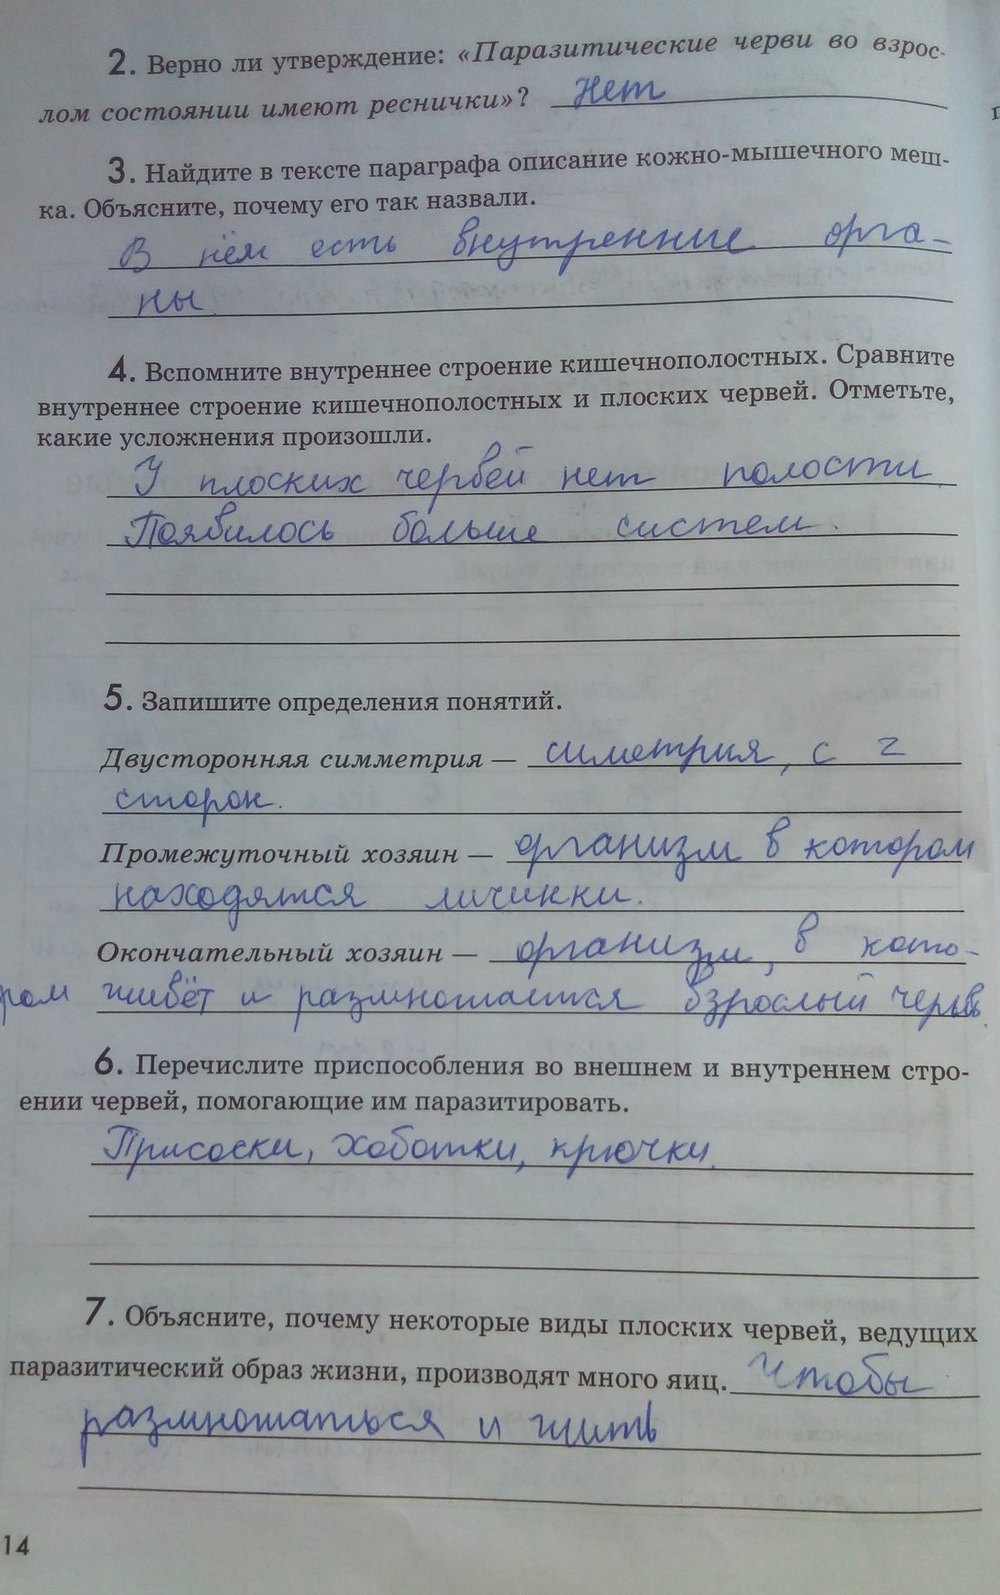 2. Верно ли утверждение: «Паразитические черви во взрос-
лом состоянии имеют реснички»? Нет
3. Найдите в тексте параграфа описание кожно-мышечного меш-
ка. Объясните, почему его так назвали.
В нём есть внутренние орга-
ны.
4. Вспомните внутреннее строение кишечнополостных. Сравните
внутреннее строение кишечнополостных и плоских червей. Отметьте,
какие усложнения произошли.
У плоских червей нет полости.
Появилось больше систем.
5. Запишите определения понятий.
Двусторонняя симметрия — симетрия, с 2
сторон.
Промежуточный хозяин — организм в котором
находятся личинки.
Окончательный хозяин — организм, в кото-
ром живёт и размножается взрослый червь.
6. Перечислите приспособления во внешнем и внутреннем стро-
ении червей, помогающие им паразитировать.
Присоски, хоботки, крючки.
7. Объясните, почему некоторые виды плоских червей, ведущих
паразитический образ жизни, производят много яиц. Чтобы
размножаться и жить
14